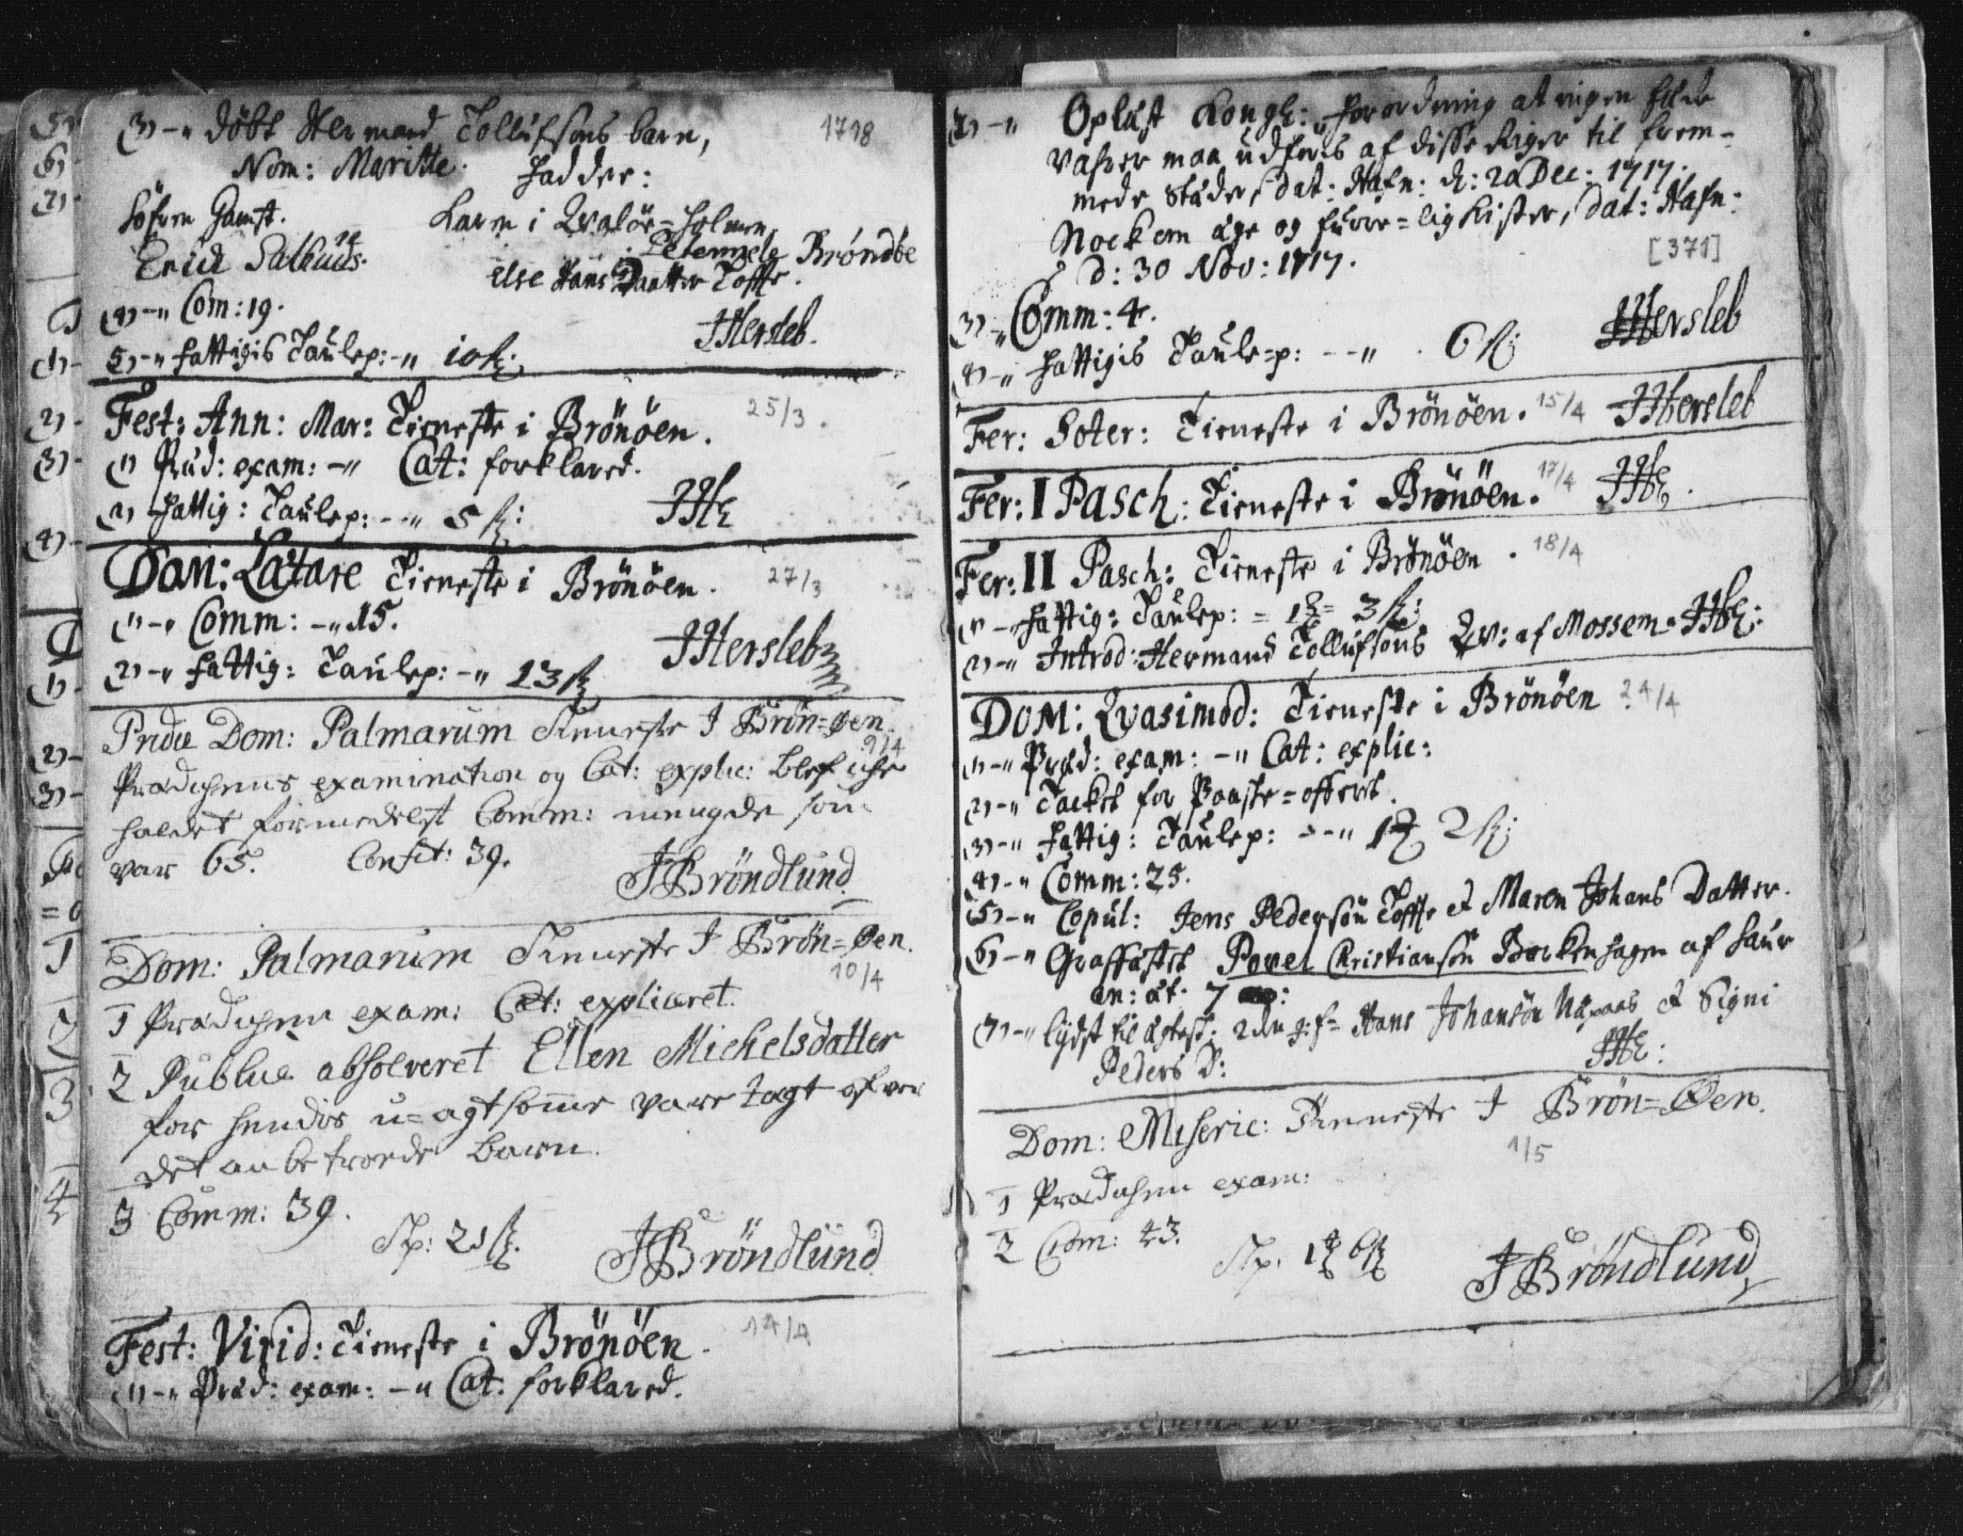 3) -" döbt Hermand Tollufsöns barn, 1718
Nom: Maritte. Fadder:
Söfren Gamst. Karn i Qvalöe=holmen
Erich Salhuus. Petternele Brøndbe
Else Hans Daatter Tofte.
4) -" Com: 19.
5) -" Fattigis Taulep: -" 10 s: JHersleb.
Fest: Ann: Mar: Tieneste i Brönöen. 25/3.
1) Præd: exam: -" Cat: forklared.
2) Fattig: Taulep: --" 5 s: JHb
Dom: Lætare Tieneste i Brönöen. 27/3
1) -" Comm: -" 15.
2) -" Fattig: Taulep: -" 13 s JHersleb
Pridie Dom: Palmarum Tieneste I Brön=Øen.
9/4
Prædichens examination og Cat: explic: blef iche
holdet formedelst Comm: mengde som
var 65. Confit: 39.
JBröndlund
Dom: Palmarum Tieneste I Brön=Øen.
10/4
1 Prædichen exam: Cat: expliceret.
2 Publice absolveret Ellen Michelsdatter
for hendis u=agtsomme vare tagt ofver
det anbetroede barn.
3 Comm: 39.
Tp: 21 s. JBröndlund
Fest: Virid: Tieneste i Brönöen. 14/4
1) -" Præd: exam: -" Cat: forklared.
2) -" Oplæst Kongl: Forordning at ingen
vahrer maa udföris af disse Riger til frem-
mede stæder, dat: Hafn: d: 20 Dec: 1717.
Nock om æge og furre=lig kister, dat: Hafn:
d: 30 Nov: 1717. [371]
3) -" Comm: 4.
4) -" Fattigis Taulep: --" 6 s: JHersleb
Fer: Soter: Tieneste i Brönöen. 15/4 JHersleb
Fer: I Pasch: Tieneste i Brönöen. 17/4 JHb.
Fer: II Pasch: Tieneste i Brönöen. 18/4
1) -" Fattig: Taulep: = 1 = 3 s:
2) -" Introd: Hermand Tollufsöns Qv: af Mossem. JHb:
Dom: Qvasimod: Tieneste i Brönöen 24/4
1) -" Præd: exam: -" Cat: explic:
2) -" Tacket for Paaske=offeret.
3) -" Fattig: Taulep: --" 1 2 s:
4) -" Comm: 25.
5) -" Copul: Jens Pedersön Tofte et Maren Johans Datter.
6) -" Graffæstet Povel Christiansön Borkenhagen af Saur
an: æt. 7
7) -" lydst til ægtesk: 2den g: f= Hans Johansön et Signi
Peders D: JHb:
Dom: Miseric: Tieneste I Brön=Øen.
1/5
1 Prædichen exam:
2 Com: 43.
Tp. 1 6 s JBröndlund